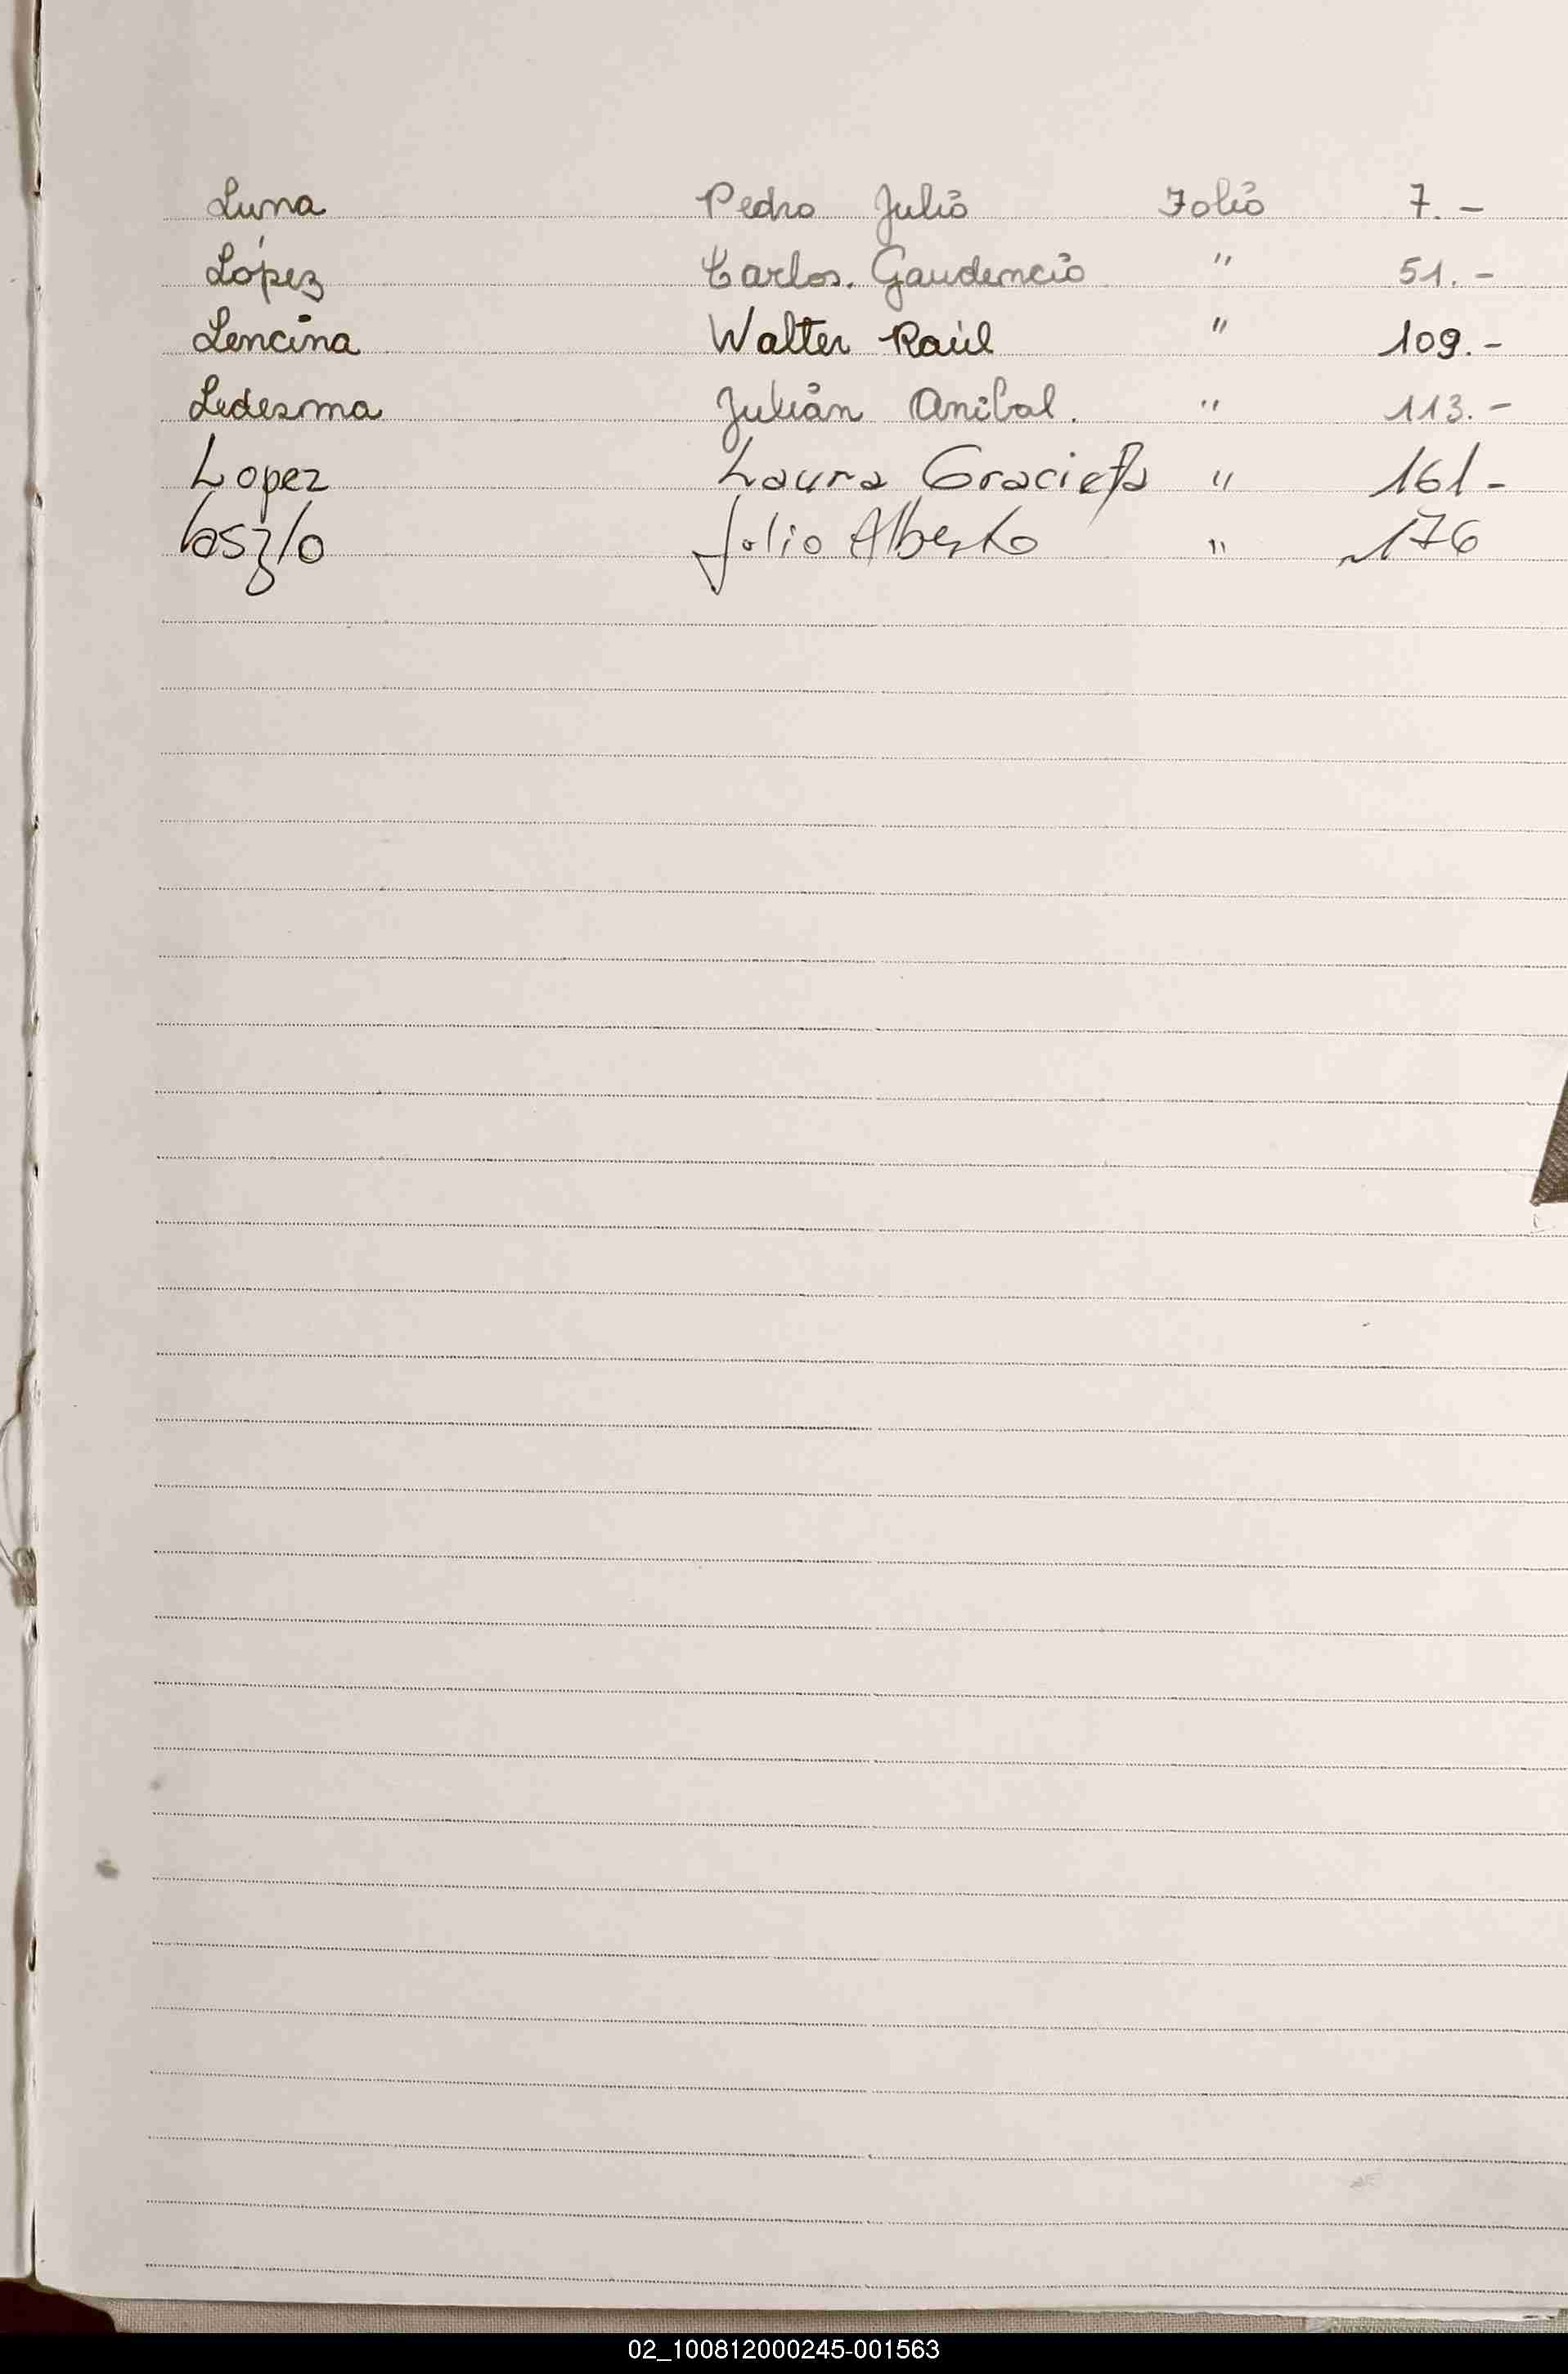 Luna Pedro Julio Folio 7.-
López Carlos. Gaudencio " 51.-
Lencina Walter Raúl " 109.-
Ledesma Julián Anibal. " 113.-
Lopez Laura Graciela " 161-
Laszlo Julio Alberto " 176
02_100812000245-001563